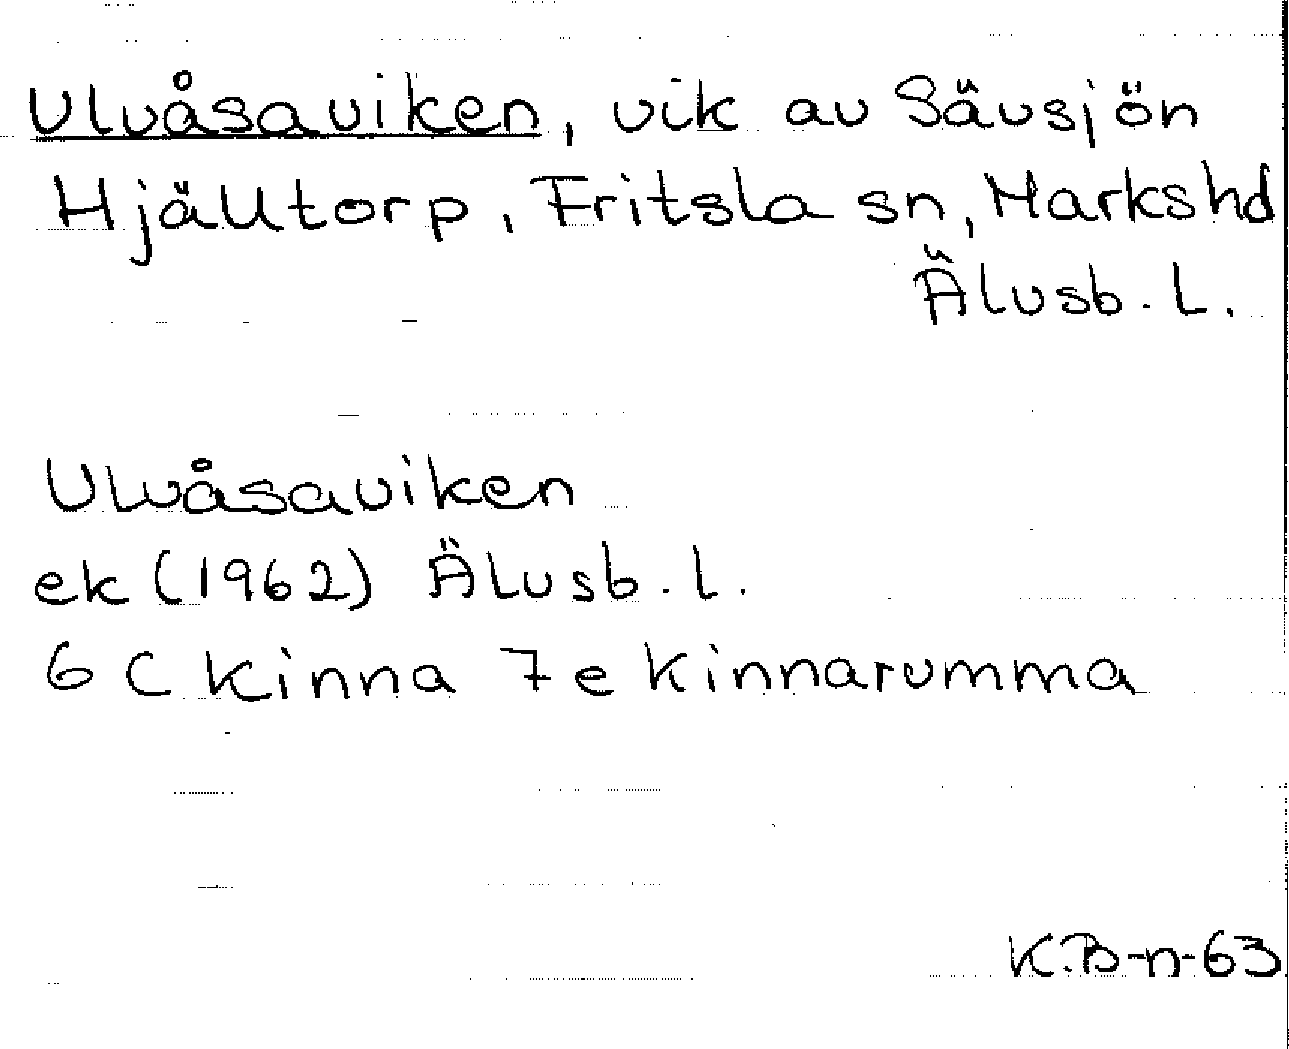 Ulvåsaviken, vik av Sävsjön
Hjälltorp, Fritsla sn, Markshd
Älvsb. L.
Ulvåsaviken
ek (1962) Älvsb. l.
6 C Kinna 7e Kinnarumma
K.B-n-63